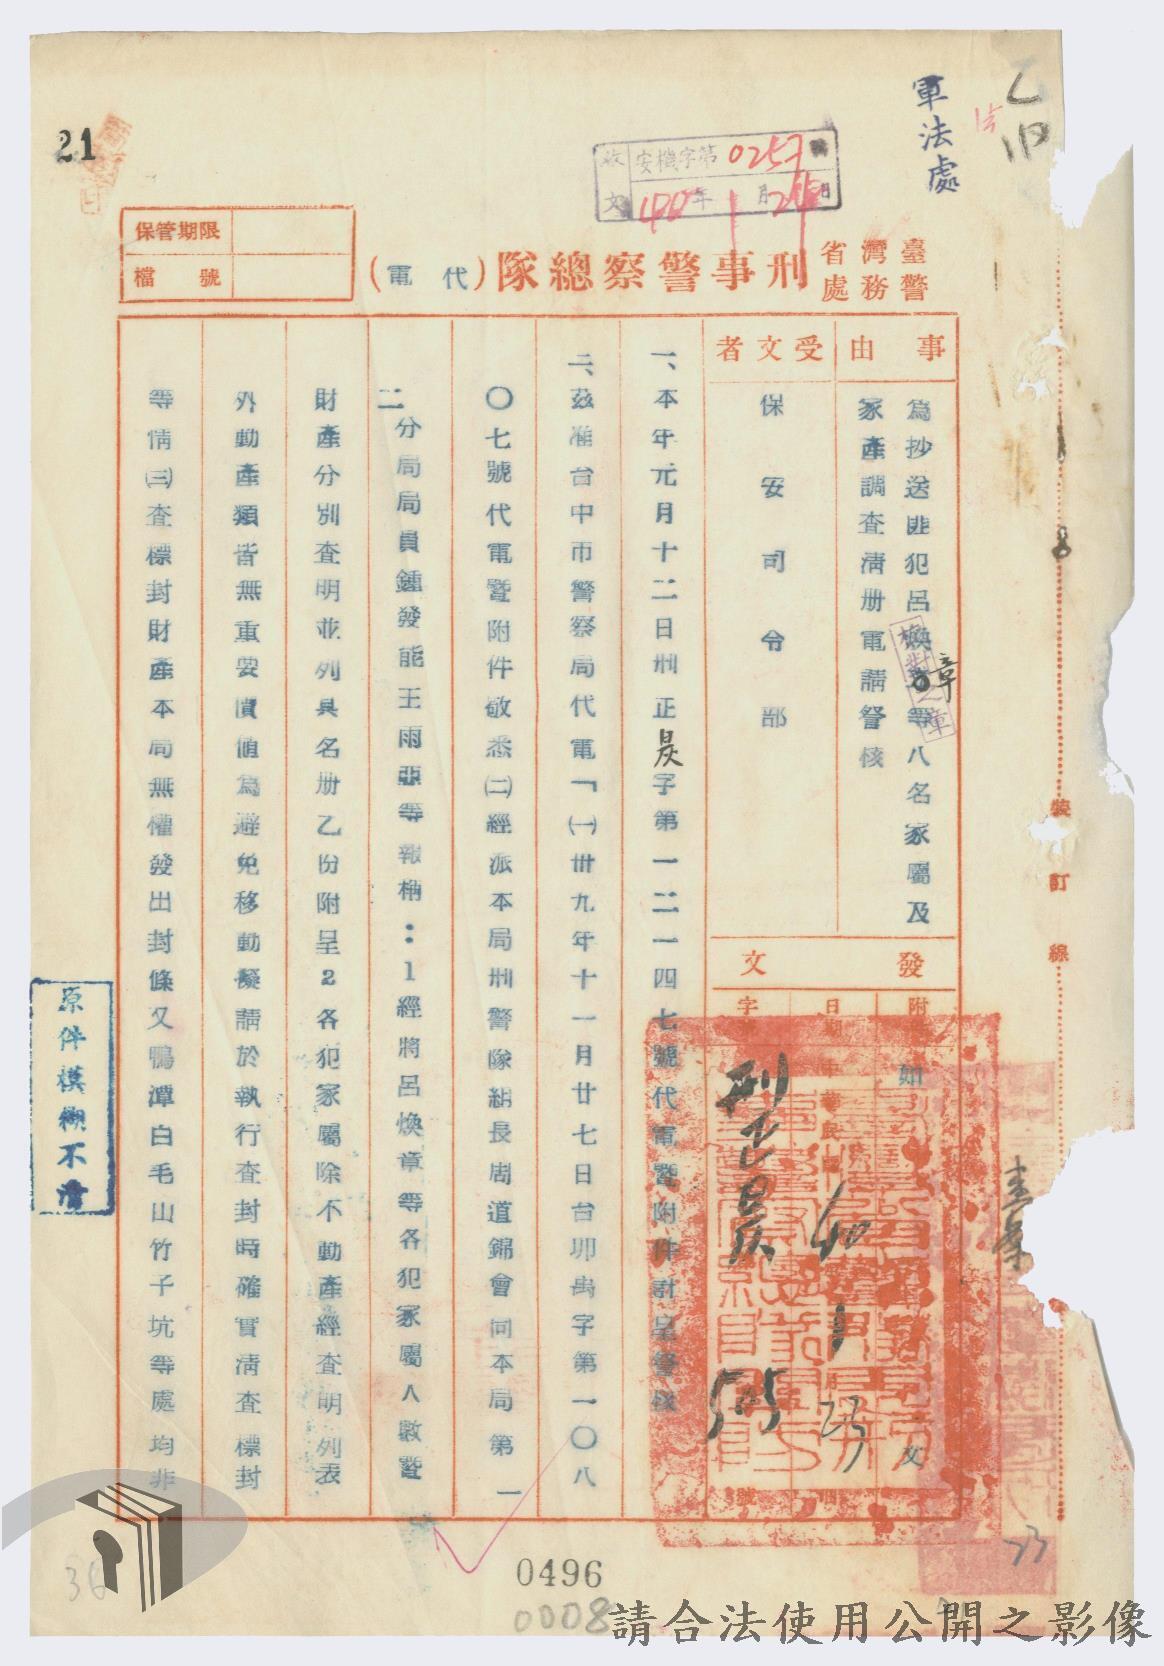 軍法處
21
收文 安機字第0257號
40年1月24日
保管期限
檔號
臺灣省警務處刑事警察總隊(代電)
事由
為抄送匪犯呂煥章等八名家屬及
家產調查清册電請詧核
受文者
保安司令部
發文
附
如
文
日期
中華民國40年1月23日
字
刑正昃
505
號
一、本年元月十二日刑正昃字第一二一四七號代電暨附件計呈詧核
二、茲准台中市警察局代電「㈠卅九年十一月廿七日台卯禹字第一〇八
〇七號代電暨附件敬悉㈡經派本局刑警隊組長周道錦會同本局第一
二分局局員鍾發能王雨亞等報稱:1經將呂煥章等各犯家屬人數暨
財產分別查明並列具名册乙份附呈2各犯家屬除不動產經查明列表
外動產類皆無重要價值為避免移動擬請於執行查封時確實清查標封
等情㈢查標封財產本局無權發出封條又鴨潭白毛山竹子坑等處均非
裝訂線
原件模糊不清
0496
0008
36
33
請合法使用公開之影像